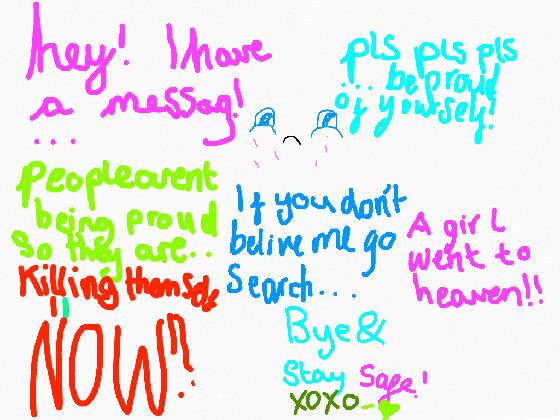 hey! I have
a messag!
...
pls pls pls
... be proud
of yourself!
People arent
being proud
So they are..
Killing themself
NOW!!
If you don't
belive me go
Search...
A girl
went to
heaven!!
Bye &
Stay Safe!
xoxo -